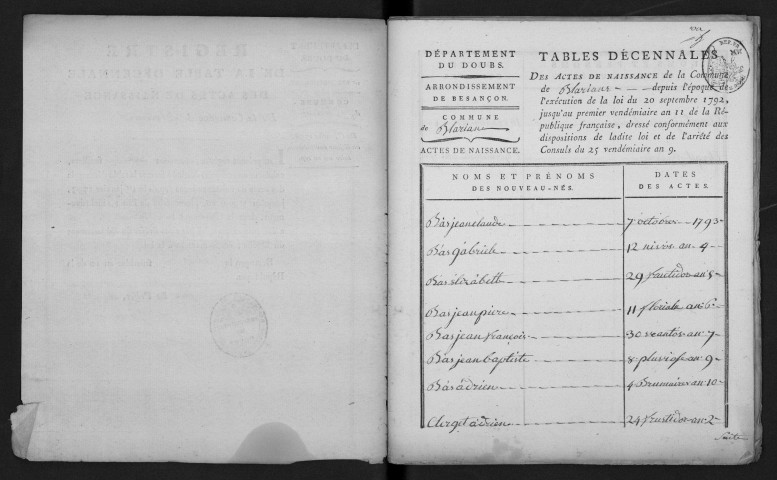 DÉPARTEMENT
DU DOUBS.
ARRONDISSEMENT
DE BESANÇON.
COMMUNE
de Blarians
ACTES DE NAISSANCE.
TABLES DÉCENNALES
DES ACTES DE NAISSANCE de la Commune
de Blarians depuis l'époque de
l'exécution de la loi du 20 septembre 1792,
jusqu'au premier vendémiaire an 11 de la Ré-
publique française, dressé conformément aux
dispositions de ladite loi et de l'arrêté des
Consuls du 25 vendémiaire an 9.
NOMS ET PRÉNOMS
DES NOUVEAU-NÉS.
DATES
DES ACTES.
Bas jean claude 7 octobre 1793
Bas gabriele 12 nivos an 4
Bas élizabett 29 fructidor an 5
Bas jean piere 11 floriale an 6
Bas jean françois 30 vantos an 7
Bas jean baptiste 8 pluviose an 9
Bas adrien 4 Brumaire an 10
Clerget adrien 24 fructidor an 2
suite